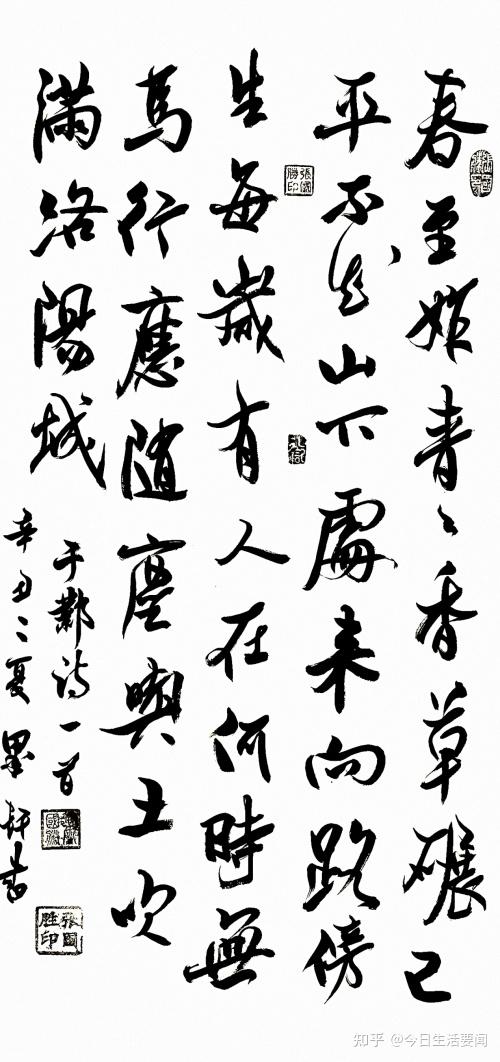 春至始青々香草碾已
平不知山下處来向路傍
生每歲有人在何時無
馬行應随塵與土吹
滿洛陽城
于鄴詩一首
辛丑之夏墨軒書
張國勝印
張國胜印
知乎 @今日生活要闻